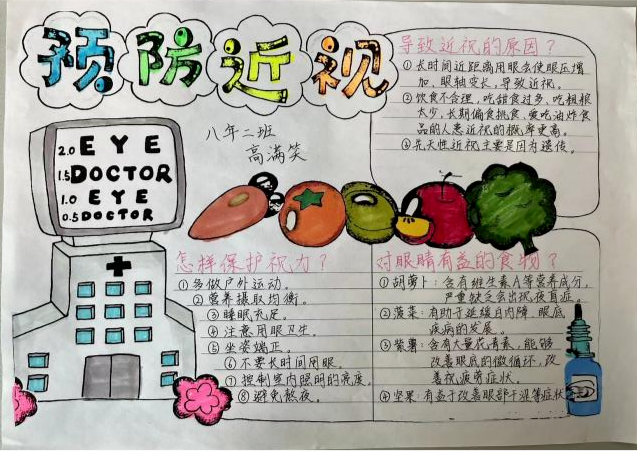 预防近视
八年二班
高满笑
导致近视的原因？
①长时间近距离用眼会使眼压增
加、眼轴变长，导致近视。
②饮食不合理，吃甜食过多、吃粗粮
太少，长期偏食挑食，爱吃油炸食
品的人患近视的概率更高。
③先天性近视主要是因为遗传。
2.0 EYE
1.5 DOCTOR
1.0 EYE
0.5 DOCTOR
怎样保护视力？
①多做户外运动。
②营养摄取均衡。
③睡眠充足。
④注意用眼卫生。
⑤坐姿端正。
⑥不要长时间用眼。
⑦控制室内照明的亮度。
⑧避免熬夜。
对眼睛有益的食物？
①胡萝卜：含有维生素A等营养成分，
严重缺乏会出现夜盲症。
②菠菜：有助于延缓白内障、眼底
疾病的发展。
③紫薯：含有大量花青素，能够
改善眼底的微循环，改
善视疲劳症状。
④坚果：有益于改善眼部干涩等症状